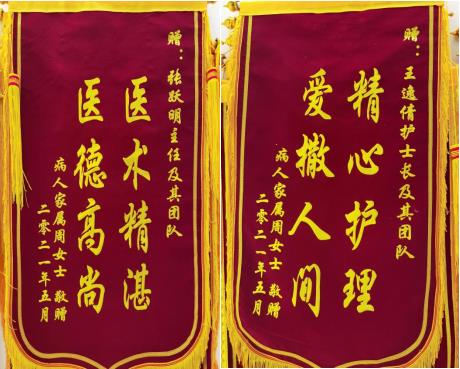 赠：张跃明主任及其团队
医术精湛
医德高尚
病人家属周女士 敬赠
二零二一年五月
赠：王逸倩护士长及其团队
精心护理
爱撒人间
病人家属周女士 敬赠
二零二一年五月